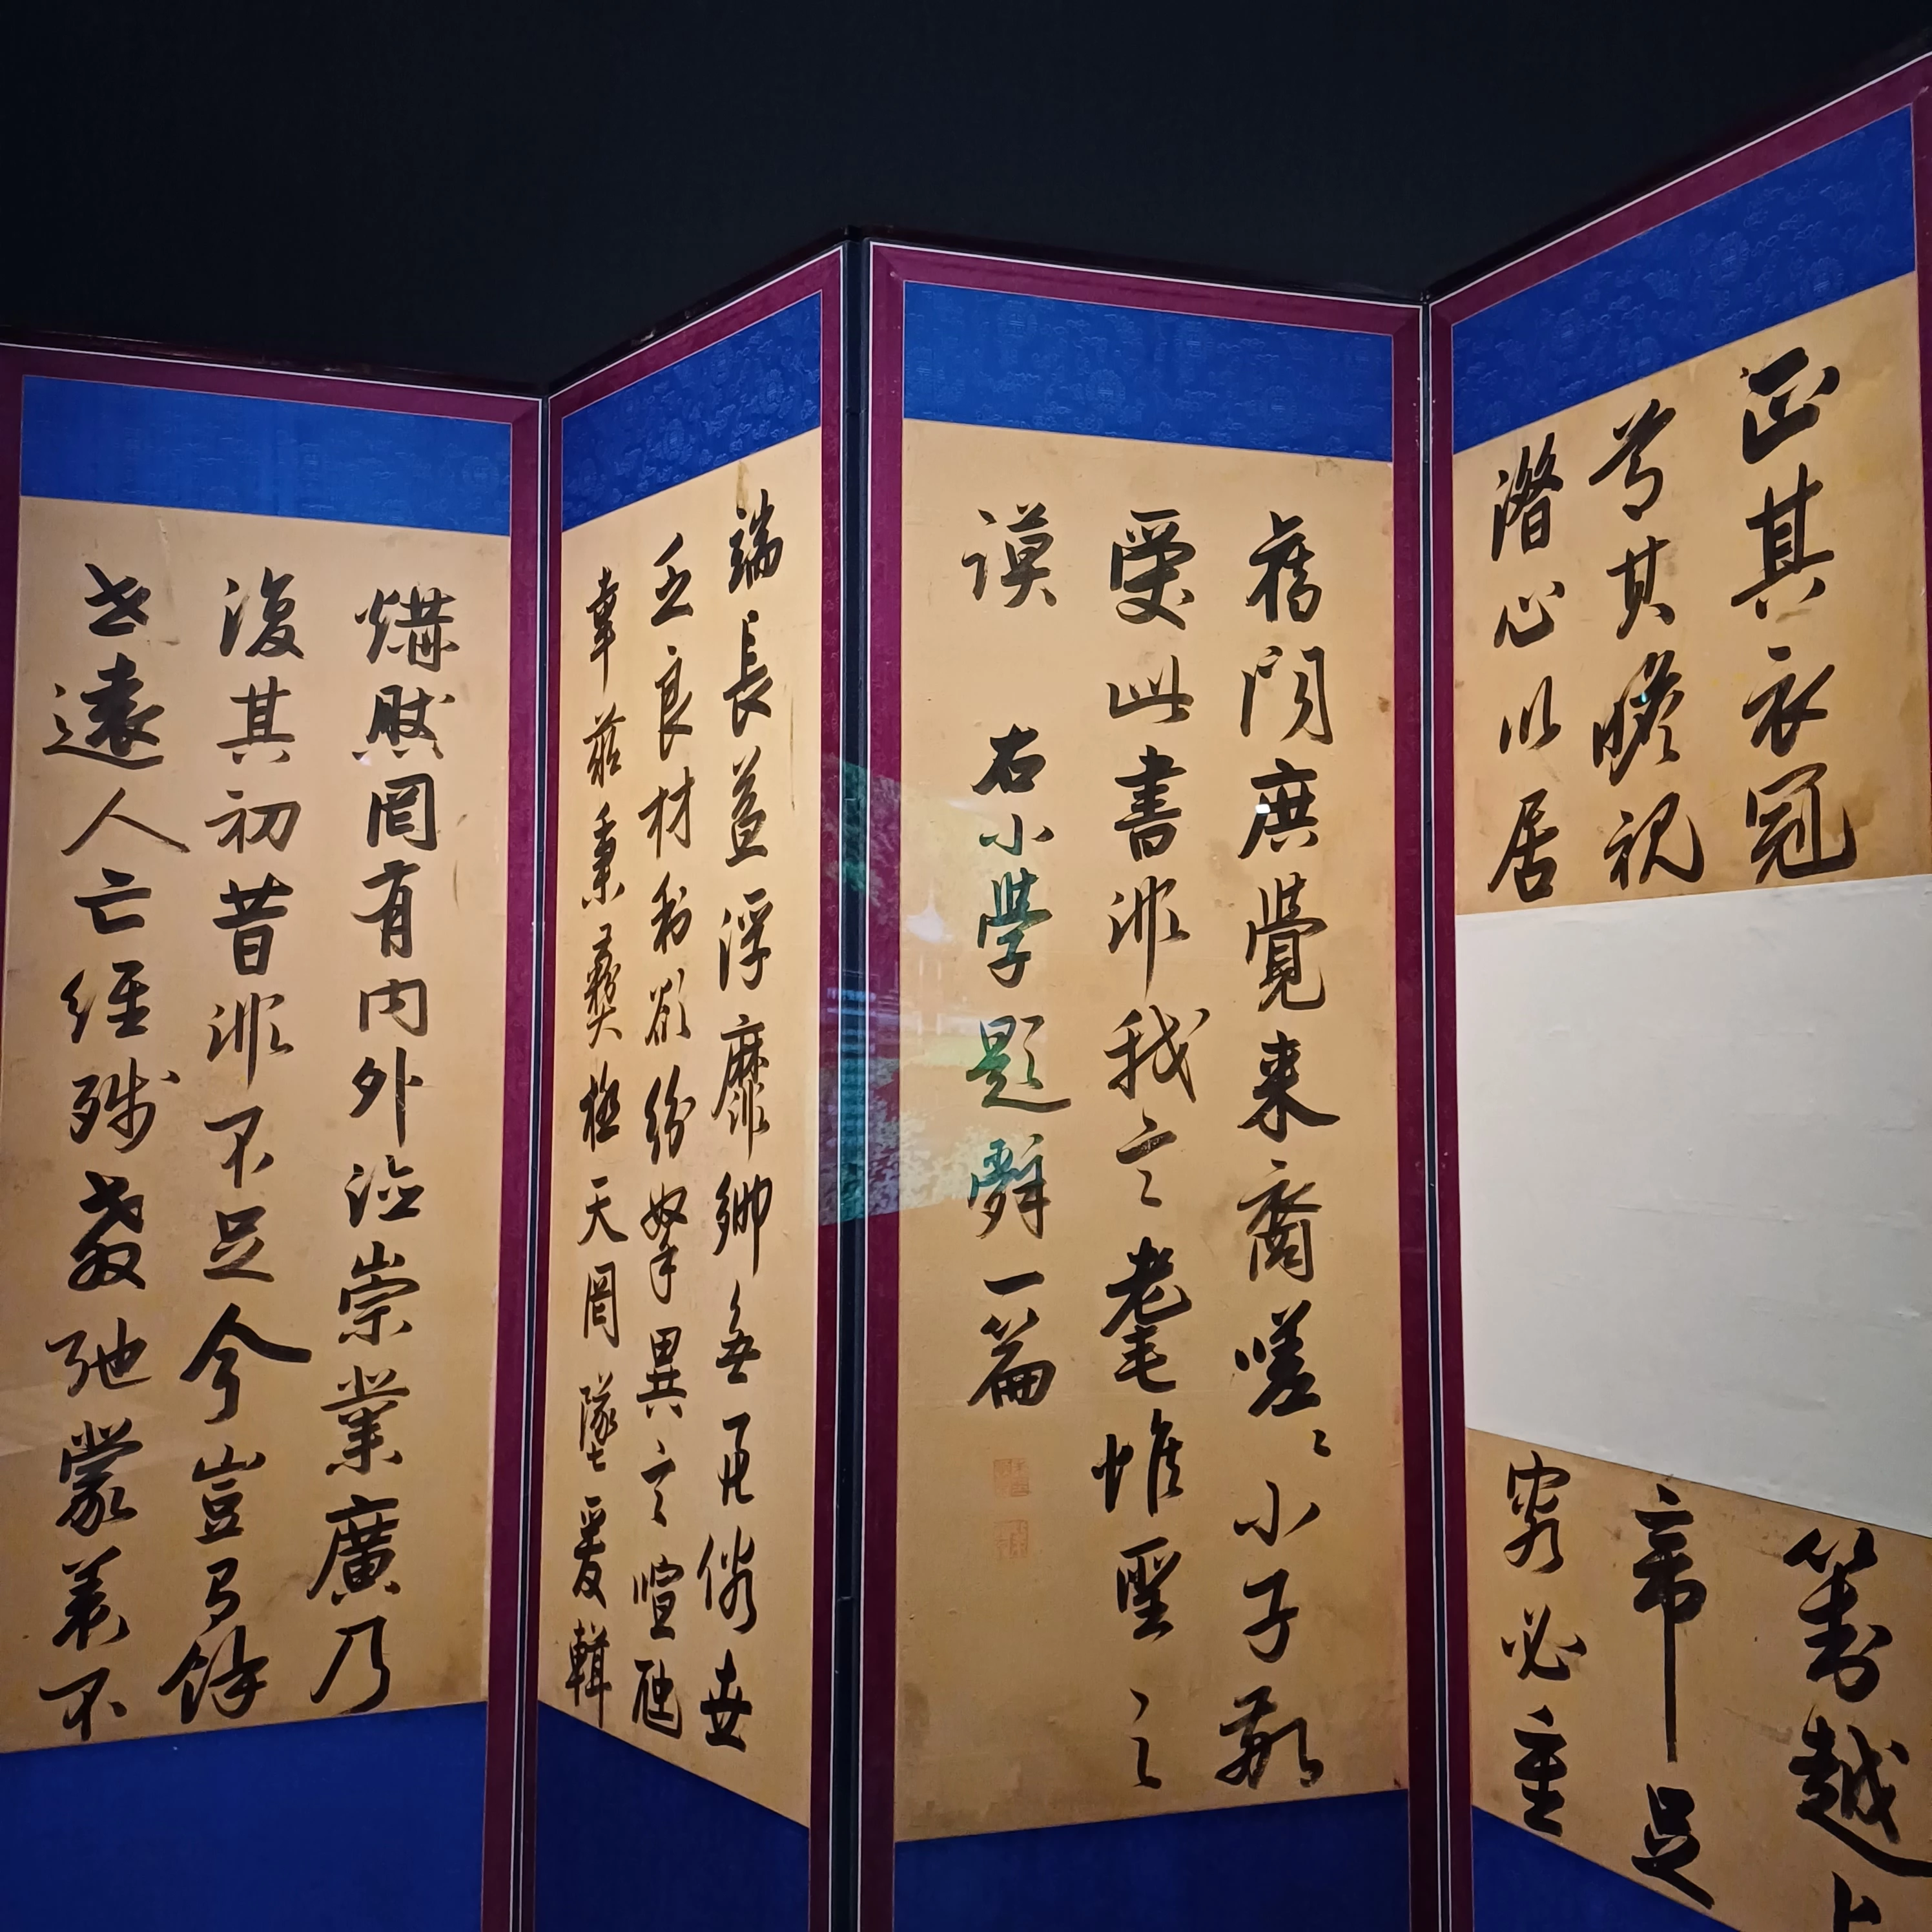 正其衣冠
尊其瞻視
潛心以居
對越上
帝足
容必重
舊聞庶覺来裔嗟〻小子敬
受此書非我言耄惟聖之
謨 右小學題辭一篇
端長益浮靡鄉無善俗世
乏良材利欲紛拏異言喧豗
幸茲秉彝極天罔墜爰輯
然罔有内外德崇業廣乃
復其初昔非不足今豈有餘
世遠人亡經殘教弛蒙養不